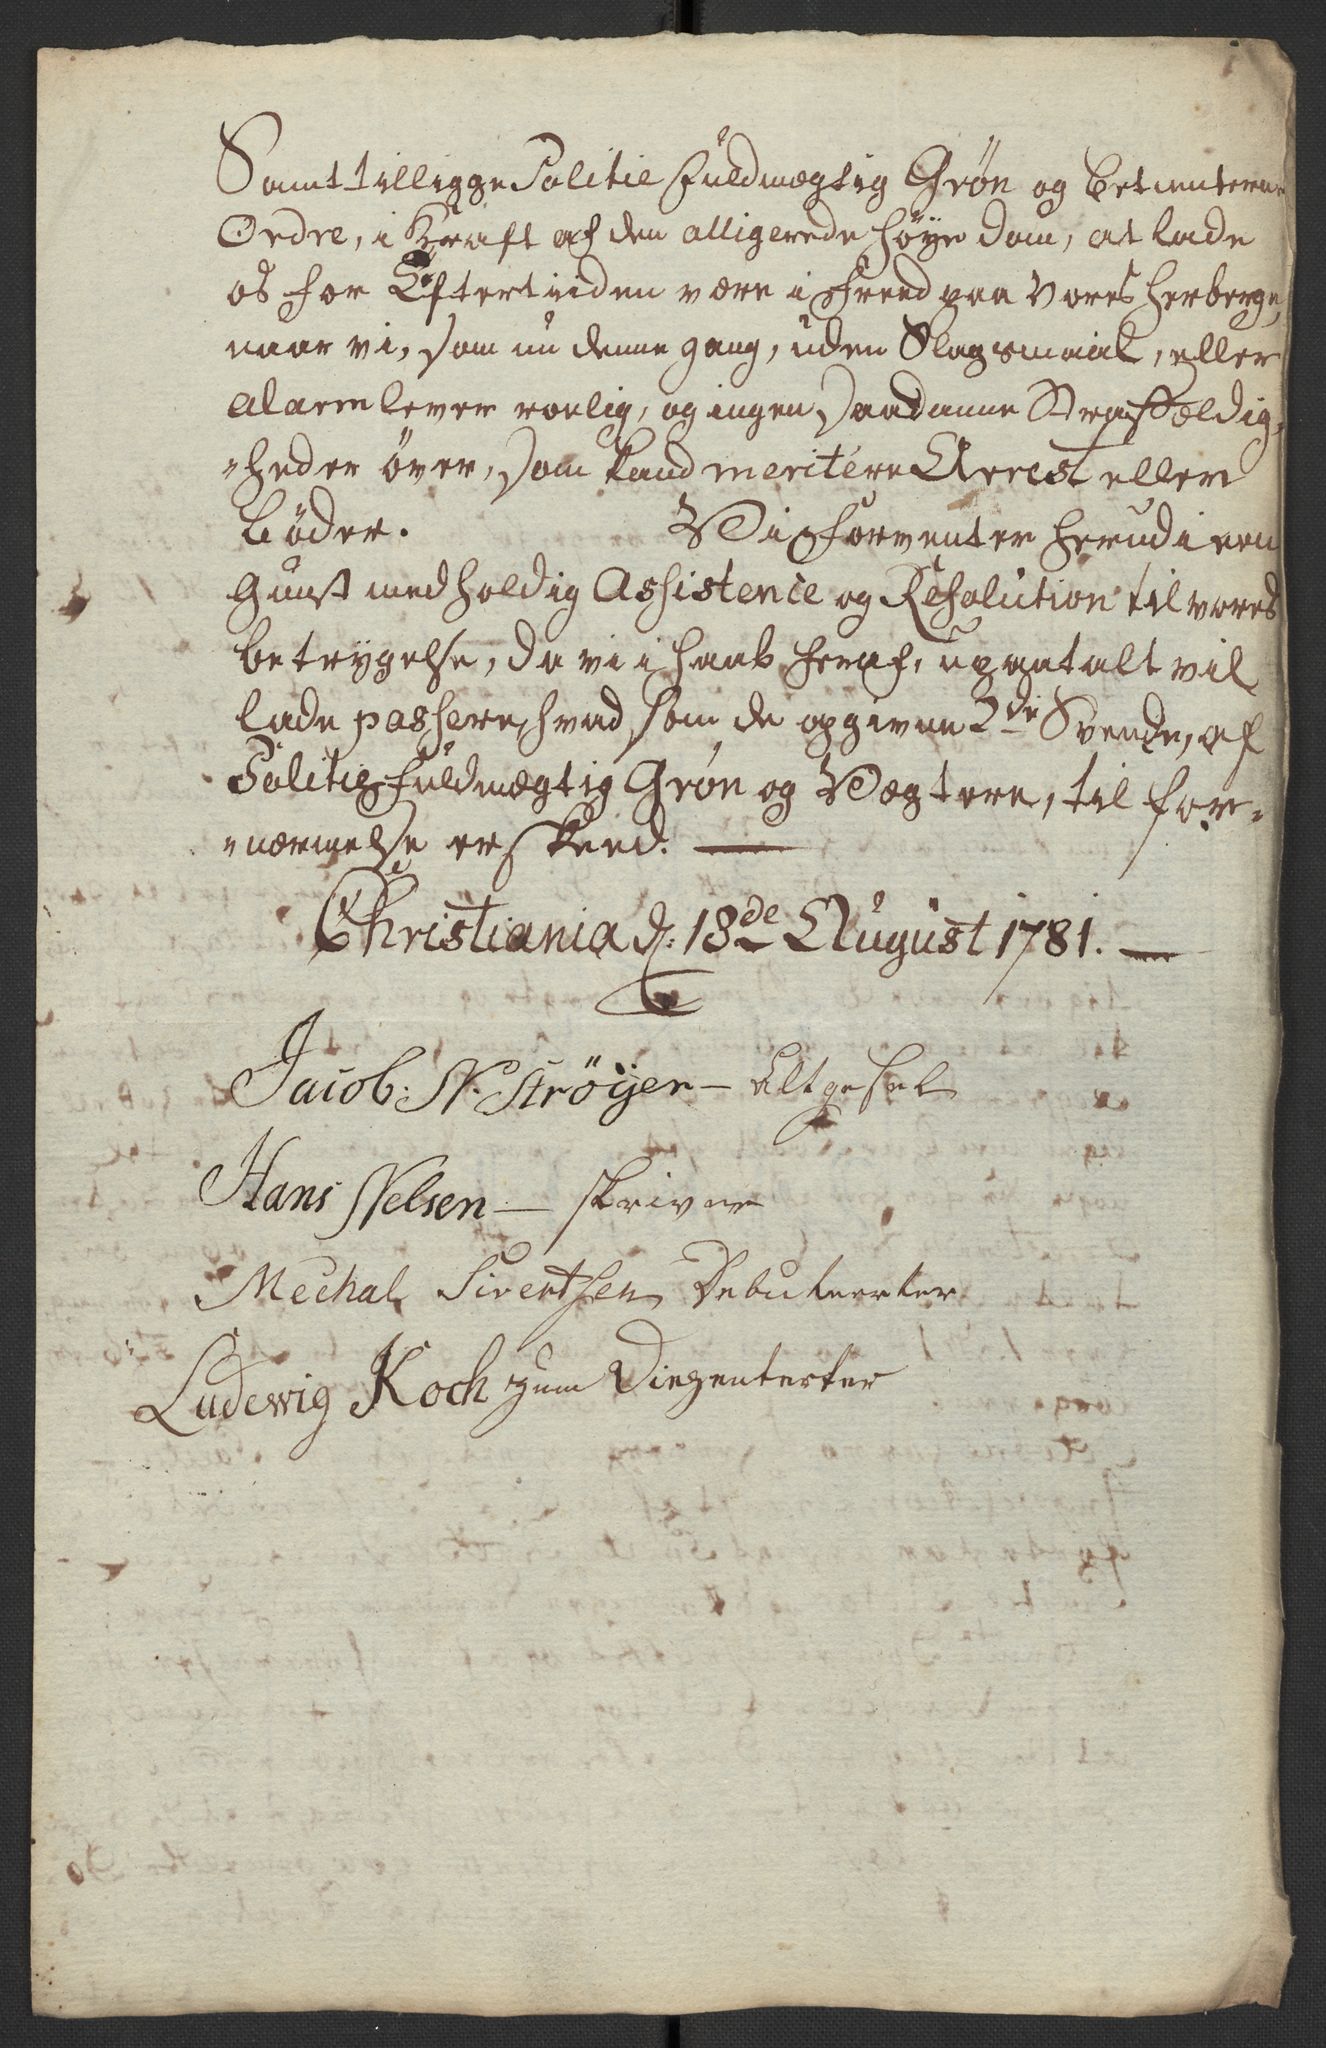 Samt tilligge Politie Fuldmægtig Grøn og betienterne
Ordre, i Kraft af den alligerede høye dom, at lade
os for Eftertiiden være i Freed paa vores herberge,
naar vi, som nu denne gang, uden Slagsmaal, eller
alarm lever roelig, og ingen saadanne Straffældig„
„heder över, som kand meritére Arrest eller
böder. Vi forventer herudi een
gunst medholdig Assistence og Resolution til vores
betrygelse, da vi i haab heraf, upaatalt vil
lade passere, hvad som de opgivne 2de Svende, af
Politiefuldmægtig Grøn og Vægtere, til for„
„nærmelse er skeed.
Christiania d: 18de August 1781.
Jacob: N: Ströyer — Altgesel
Hans Nelsen — skriver
Mechal Sivertsen Debuteerter
Ludewig Koch zum Diezenterter